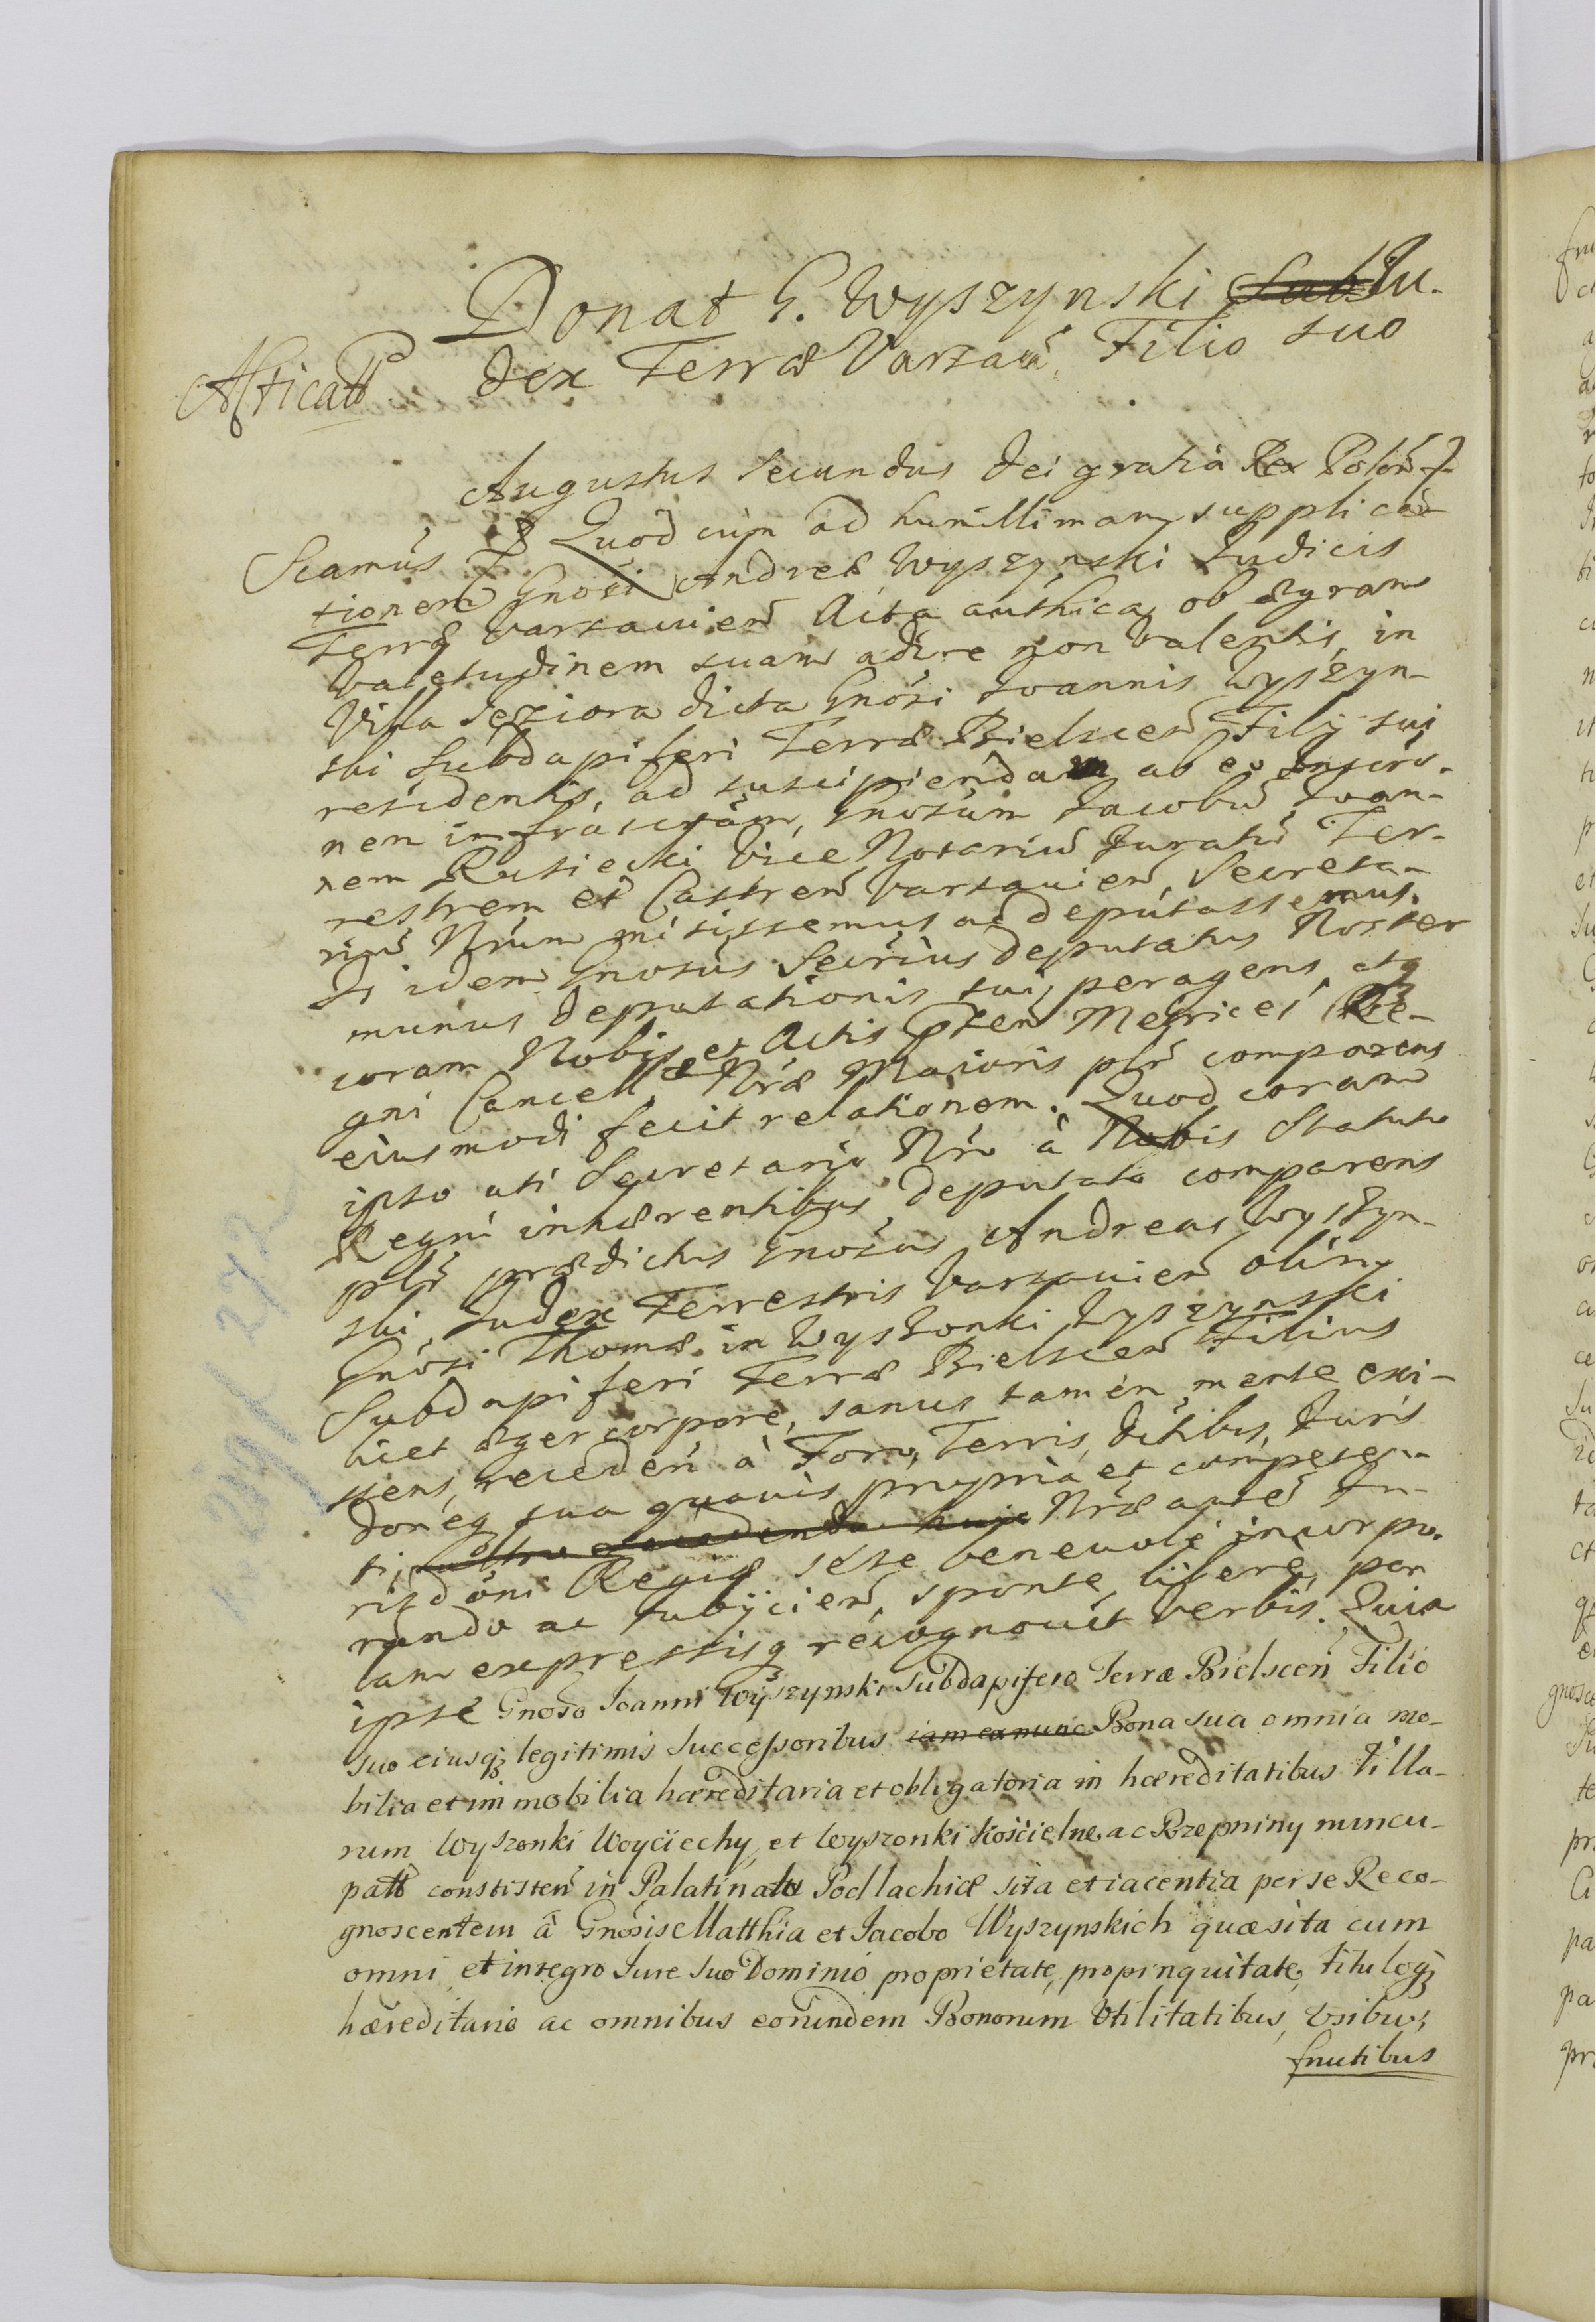 Donat G. Wyszynski Sub Ju-
dex Terræ Varsavń. Filio suo
Augustus Secundus Dei gratia Rex Polon
Scamus Quod cum ad humillimam supplica-
tionem Gnosi Andreæ Wyszynski Judicis
Terræ Varsavień Acta authica ob ægram
Valetudinem suam adire non valentis, in
Villa Jeziora dicta Gnosi Joannis Wyszyn-
ski Subdapiferi Terræ Bielsceń Filij sui
residentis, ad suscipiendam ab eo Inscrō-
nem infrascrptam, Gnosum Jacobū Joan-
nem Rusiecki Vice Notariū Juratū Ter-
restrem et Castreń Varsavień, Secreta-
riū Nrum misissemus ac deputassemus.
Is idem Gnosus Secrius deputatus Noster
munus deputationis sui peragens, atq
coram Nobis et Actis Pnten Metrices Re-
gni Cancell. Nræ Maioris plr comparens
eiusmodi fecit relationem. Quod coram
ipso uti Secretario Nro à Nobis Statuto
Regni inhærentibus deputato comparens
plr prædictus Gnosus Andreas Wyszyn-
ski, Judex Terrestris Varsavień olim
Gnosi Thomæ in Wyszonki Wyszynski
Subdapiferi Terræ Bielsceń Filius
licet æger corpore, sanus tamen mente exi-
stens, recedeń à Foro, Terris, Ditibus, Juris
doneq sua quavis propria et competen-
ti, Nræ autem Ju-
risdoni Regiæ sese benevole incorpo-
rando ac subijcień, sponte, libere, per
lam expressisq recognovit verbis. Quia
ipse Gnoso Joanni Wyszynski Subdapifero Terræ Bielsceń Filio
suo eiusq legitimis Successoribus iam ex nunc Bona sua omnia mo-
bilia et immobilia hæreditaria et obligatoria in hæreditatibus Villa-
rum Wyszonki Woyciechy, et Wyszonki Kościelne, ac Rzepniny nuncu-
patt consisteń in Palatinatu Podlachiæ sita et iacentia per se Reco-
gnoscentem à Gnosis Matthia et Jacobo Wyszynskich quæsita cum
omni et integro Jure suo Dominio proprietate, propinquitate, tituloq
hæreditario ac omnibus eorundem Bonorum Utilitatibus, Usibus,
fructibus